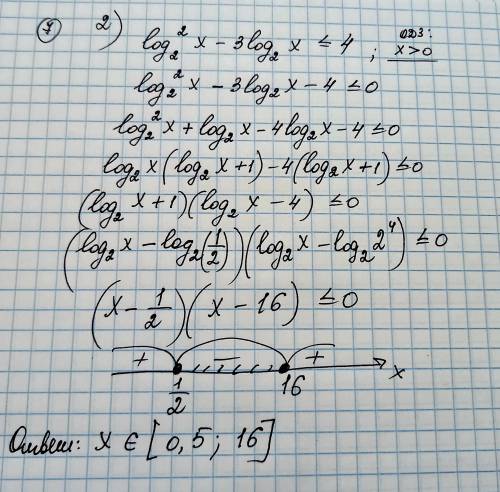 ⑦ 2) log₂² x − 3log₂ x ≤ 4 ; ОДЗ: x>0
log₂² x − 3log₂ x − 4 ≤ 0
log₂² x + log₂ x − 4log₂ x − 4 ≤ 0
log₂ x (log₂ x + 1) − 4 (log₂ x + 1) ≤ 0
(log₂ x + 1)(log₂ x − 4) ≤ 0
(log₂ x − log₂(1/2))(log₂ x − log₂ 2⁴) ≤ 0
(x − 1/2)(x − 16) ≤ 0
+ − +
1/2 16 x
Ответ: x ∈ [0,5; 16]